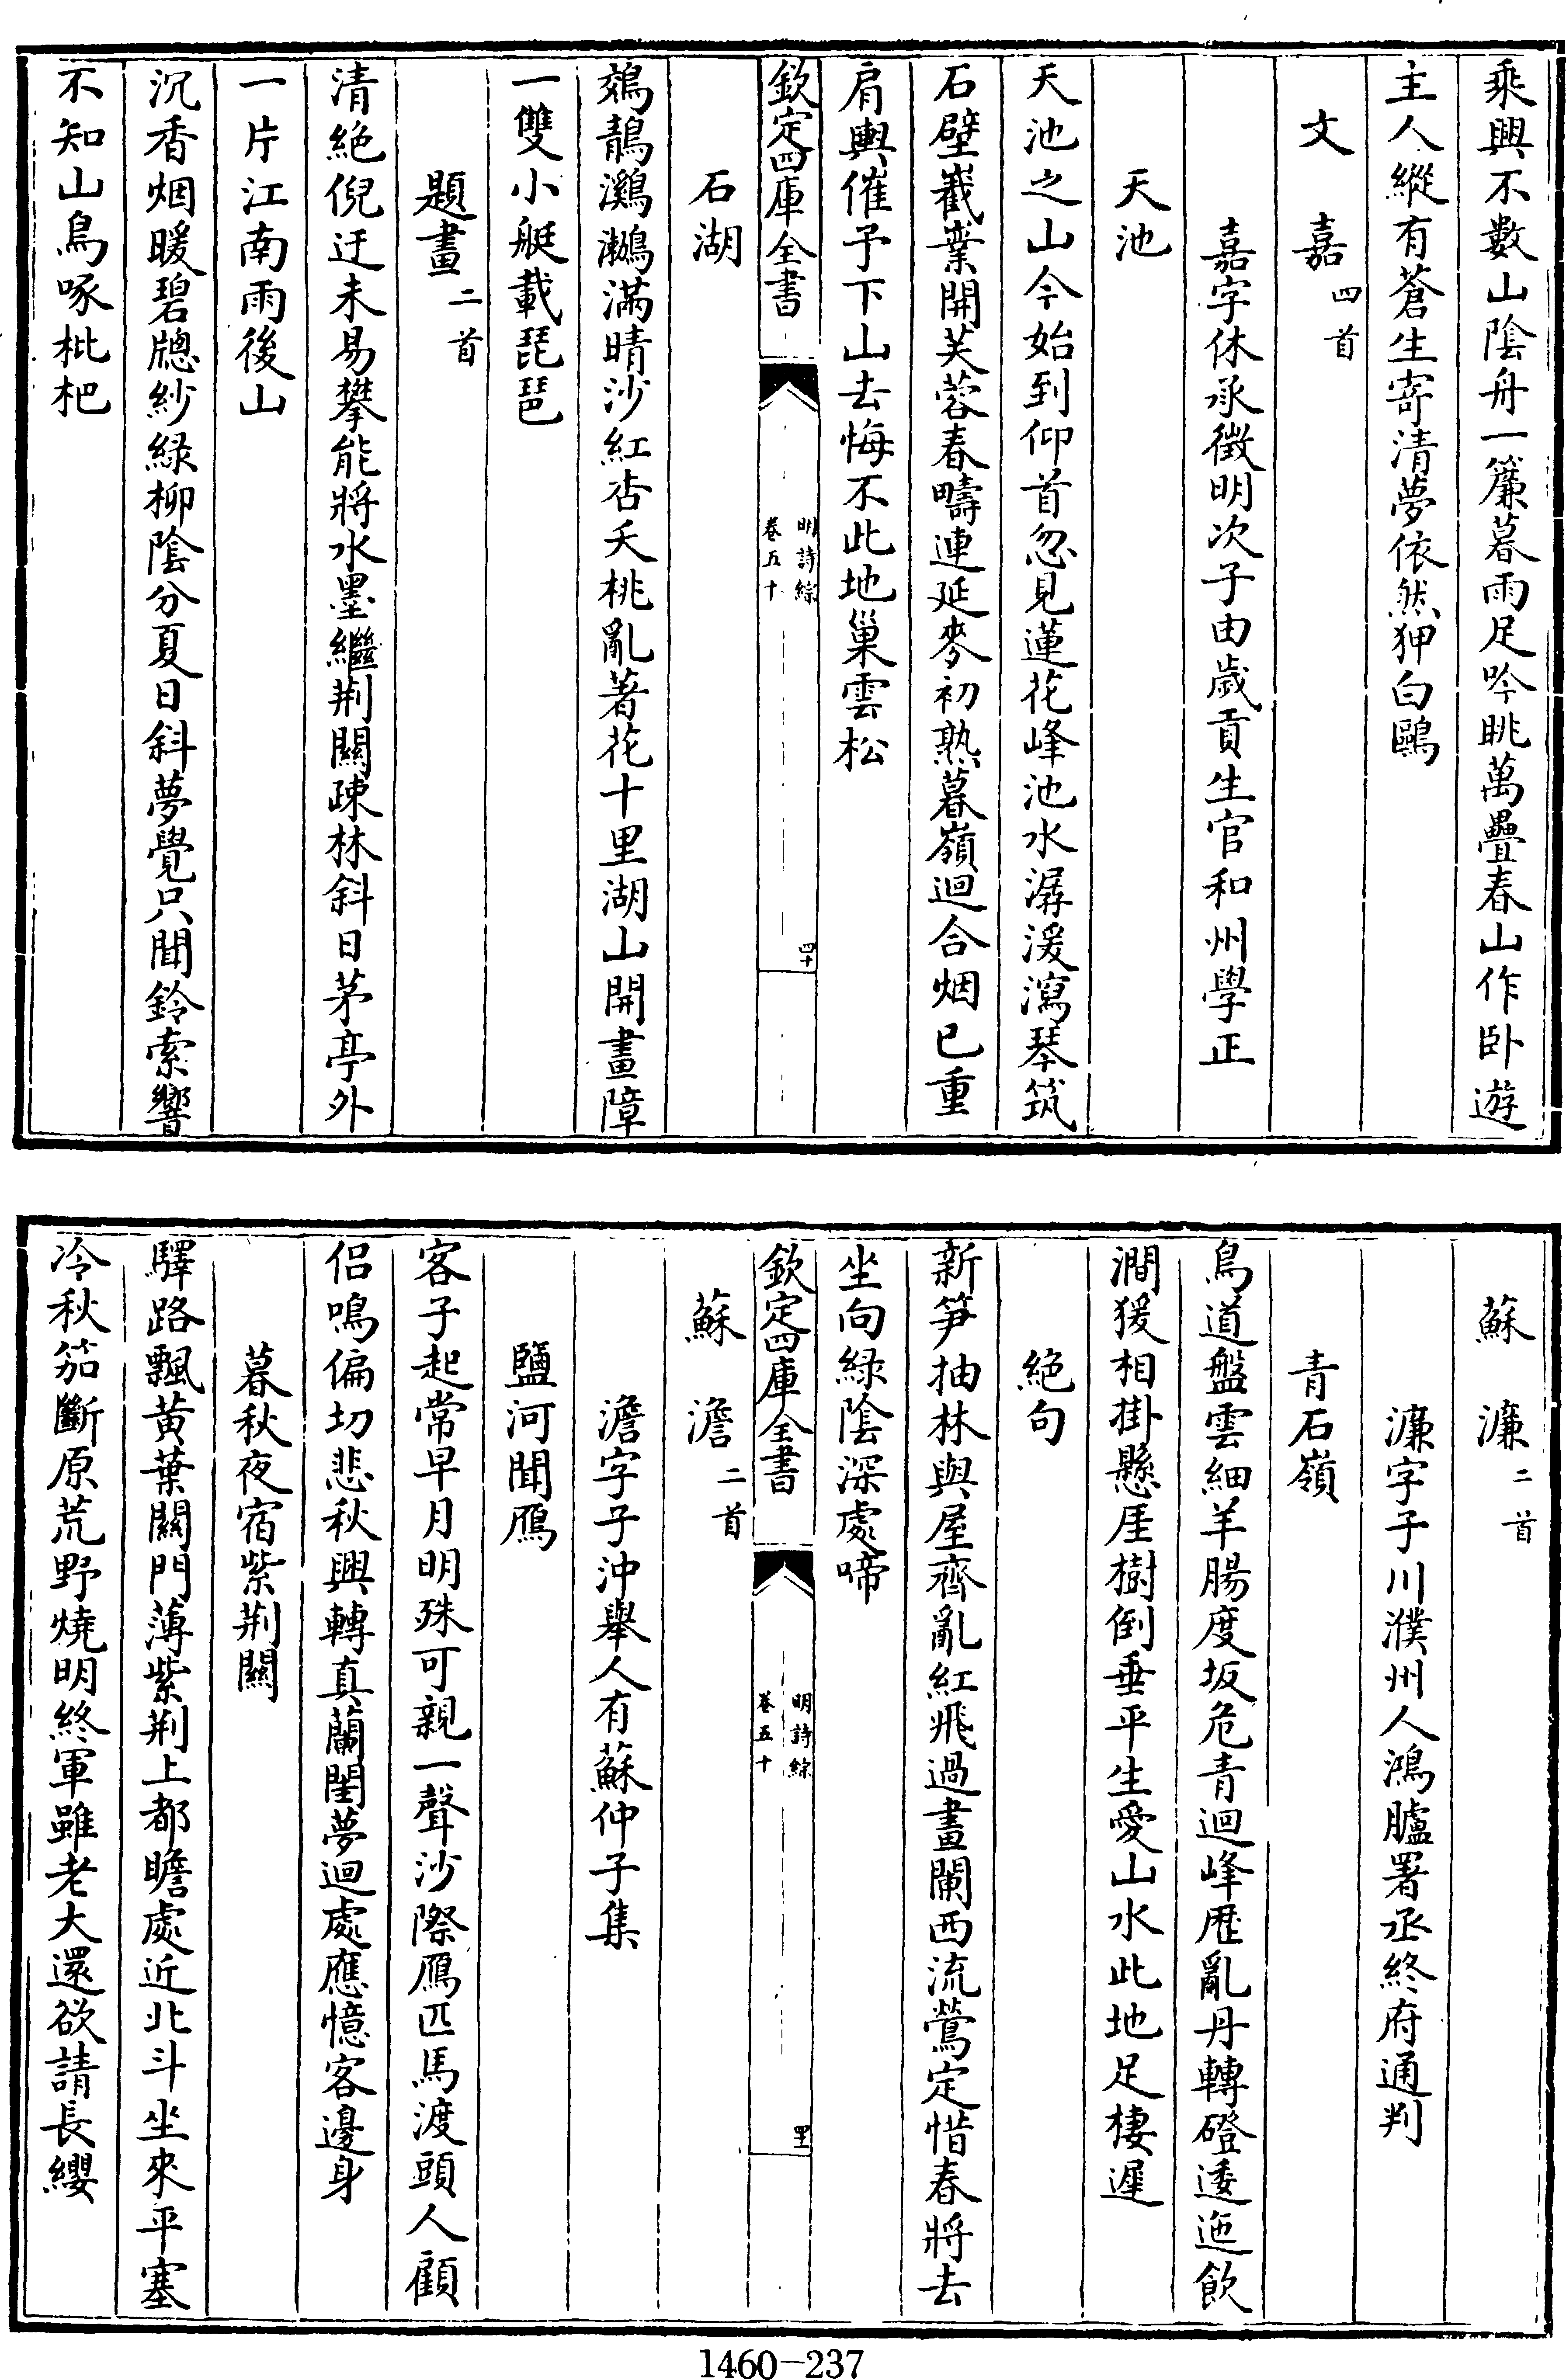 乘興不數山陰舟一簾暮雨足吟眺萬疊春山作卧遊
主人縱有蒼生寄清夢依然狎白鷗
文嘉四首
嘉字休承徵明次子由歲貢生官和州學正
天池
天池之山今始到仰首忽見蓮花峰池水潺湲瀉琴筑
石壁嶻嶪開芙蓉春疇連延麥初熟暮嶺迴合烟已重
肩輿催予下山去悔不此地巢雲松
欽定四庫全書
明詩綜
卷五十
四十
石湖
鵁鶄鸂鶒滿晴沙紅杏夭桃亂著花十里湖山開畫障
一雙小艇載琵琶
題畫二首
清絶倪迂未易攀能將水墨繼荆關疎林斜日茅亭外
一片江南雨後山
沉香烟暖碧牕紗緑柳陰分夏日斜夢覺只聞鈴索響
不知山鳥啄枇杷
蘇濂二首
濂字子川濮州人鴻臚署丞終府通判
青石嶺
鳥道盤雲細羊腸度坂危青迴峰歴亂丹轉磴逶迤飲
澗猨相掛懸厓樹倒垂平生愛山水此地足棲遲
絶句
新笋抽林與屋齊亂紅飛過畫闌西流鶯定惜春將去
坐向緑陰深處啼
欽定四庫全書
明詩綜
卷五十
四十一
蘇澹二首
澹字子沖舉人有蘇仲子集
鹽河聞鴈
客子起常早月明殊可親一聲沙際鴈匹馬渡頭人顧
侣鳴偏切悲秋興轉真蘭閨夢迴處應憶客邊身
暮秋夜宿紫荆關
驛路飄黄葉關門薄紫荆上都瞻處近北斗坐來平塞
冷秋笳斷原荒野燒明終軍雖老大還欲請長纓
1460—237